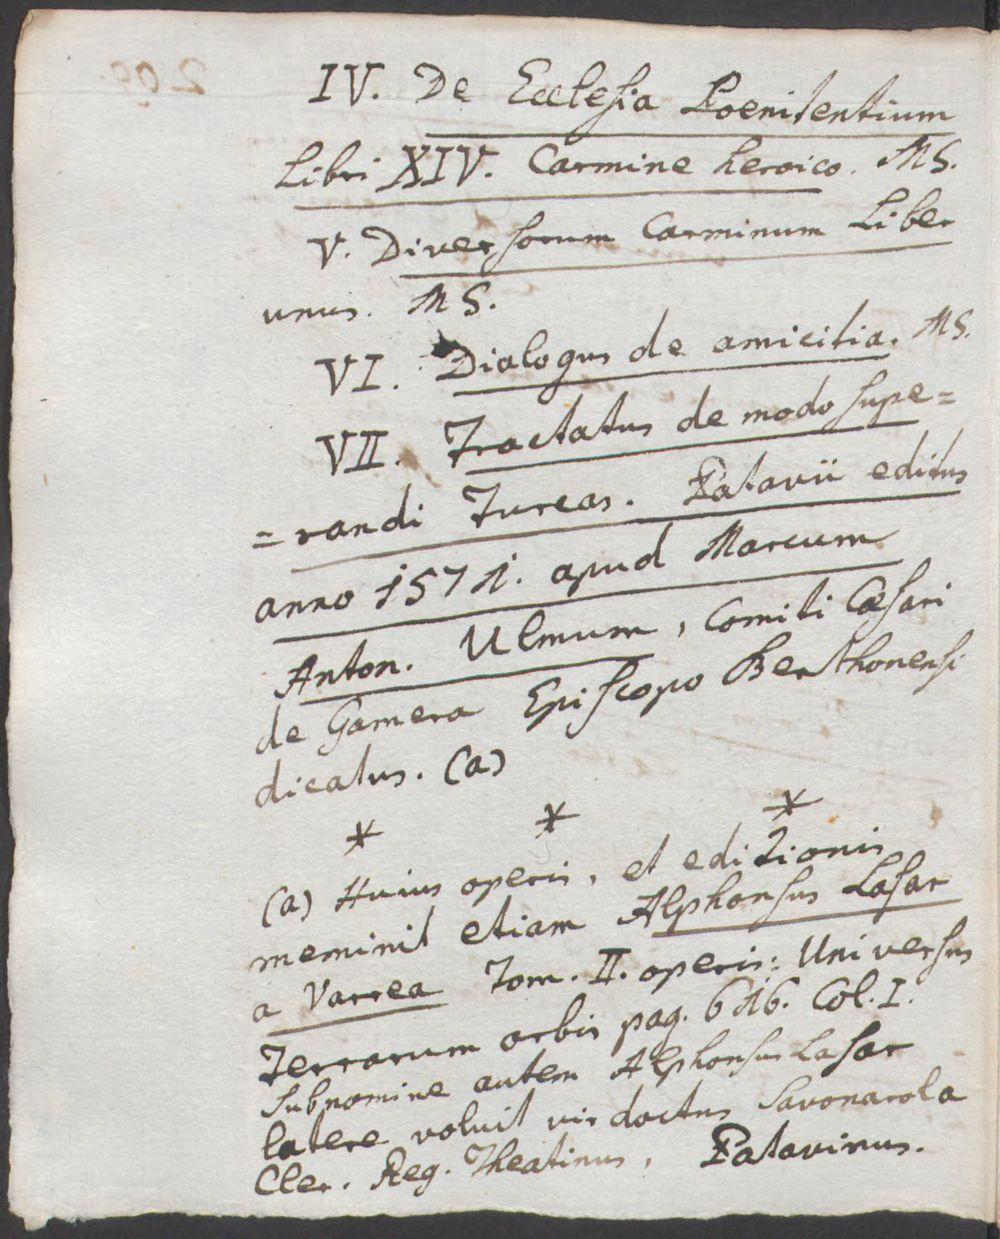 IV. De Ecclesia Poenitentium
Libri XIV. Carmine heroico. MS.
V. Diversorum Carminum Liber
unus. MS.
VI. Dialogus de amicitia. MS.
VII. Tractatus de modo supe=
=randi Turcas. Patavii editus
anno 1571. apud Marcum
Anton. Ulmum, Comiti Cæsari
de Gamera Episcopo Bersthonensi
dicatus. (a)
* * *
(a) Huius operis, et editionis
meminit etiam Alphonsus Lasar
a Varrea Tom. II. operis: Universus
Terrarum orbis pag. 616. Col. I.
Sub nomine autem Alphonsus Lasar
latere voluit vir doctus Savonarola
Cler. Reg. Theatinus, Patavinus.